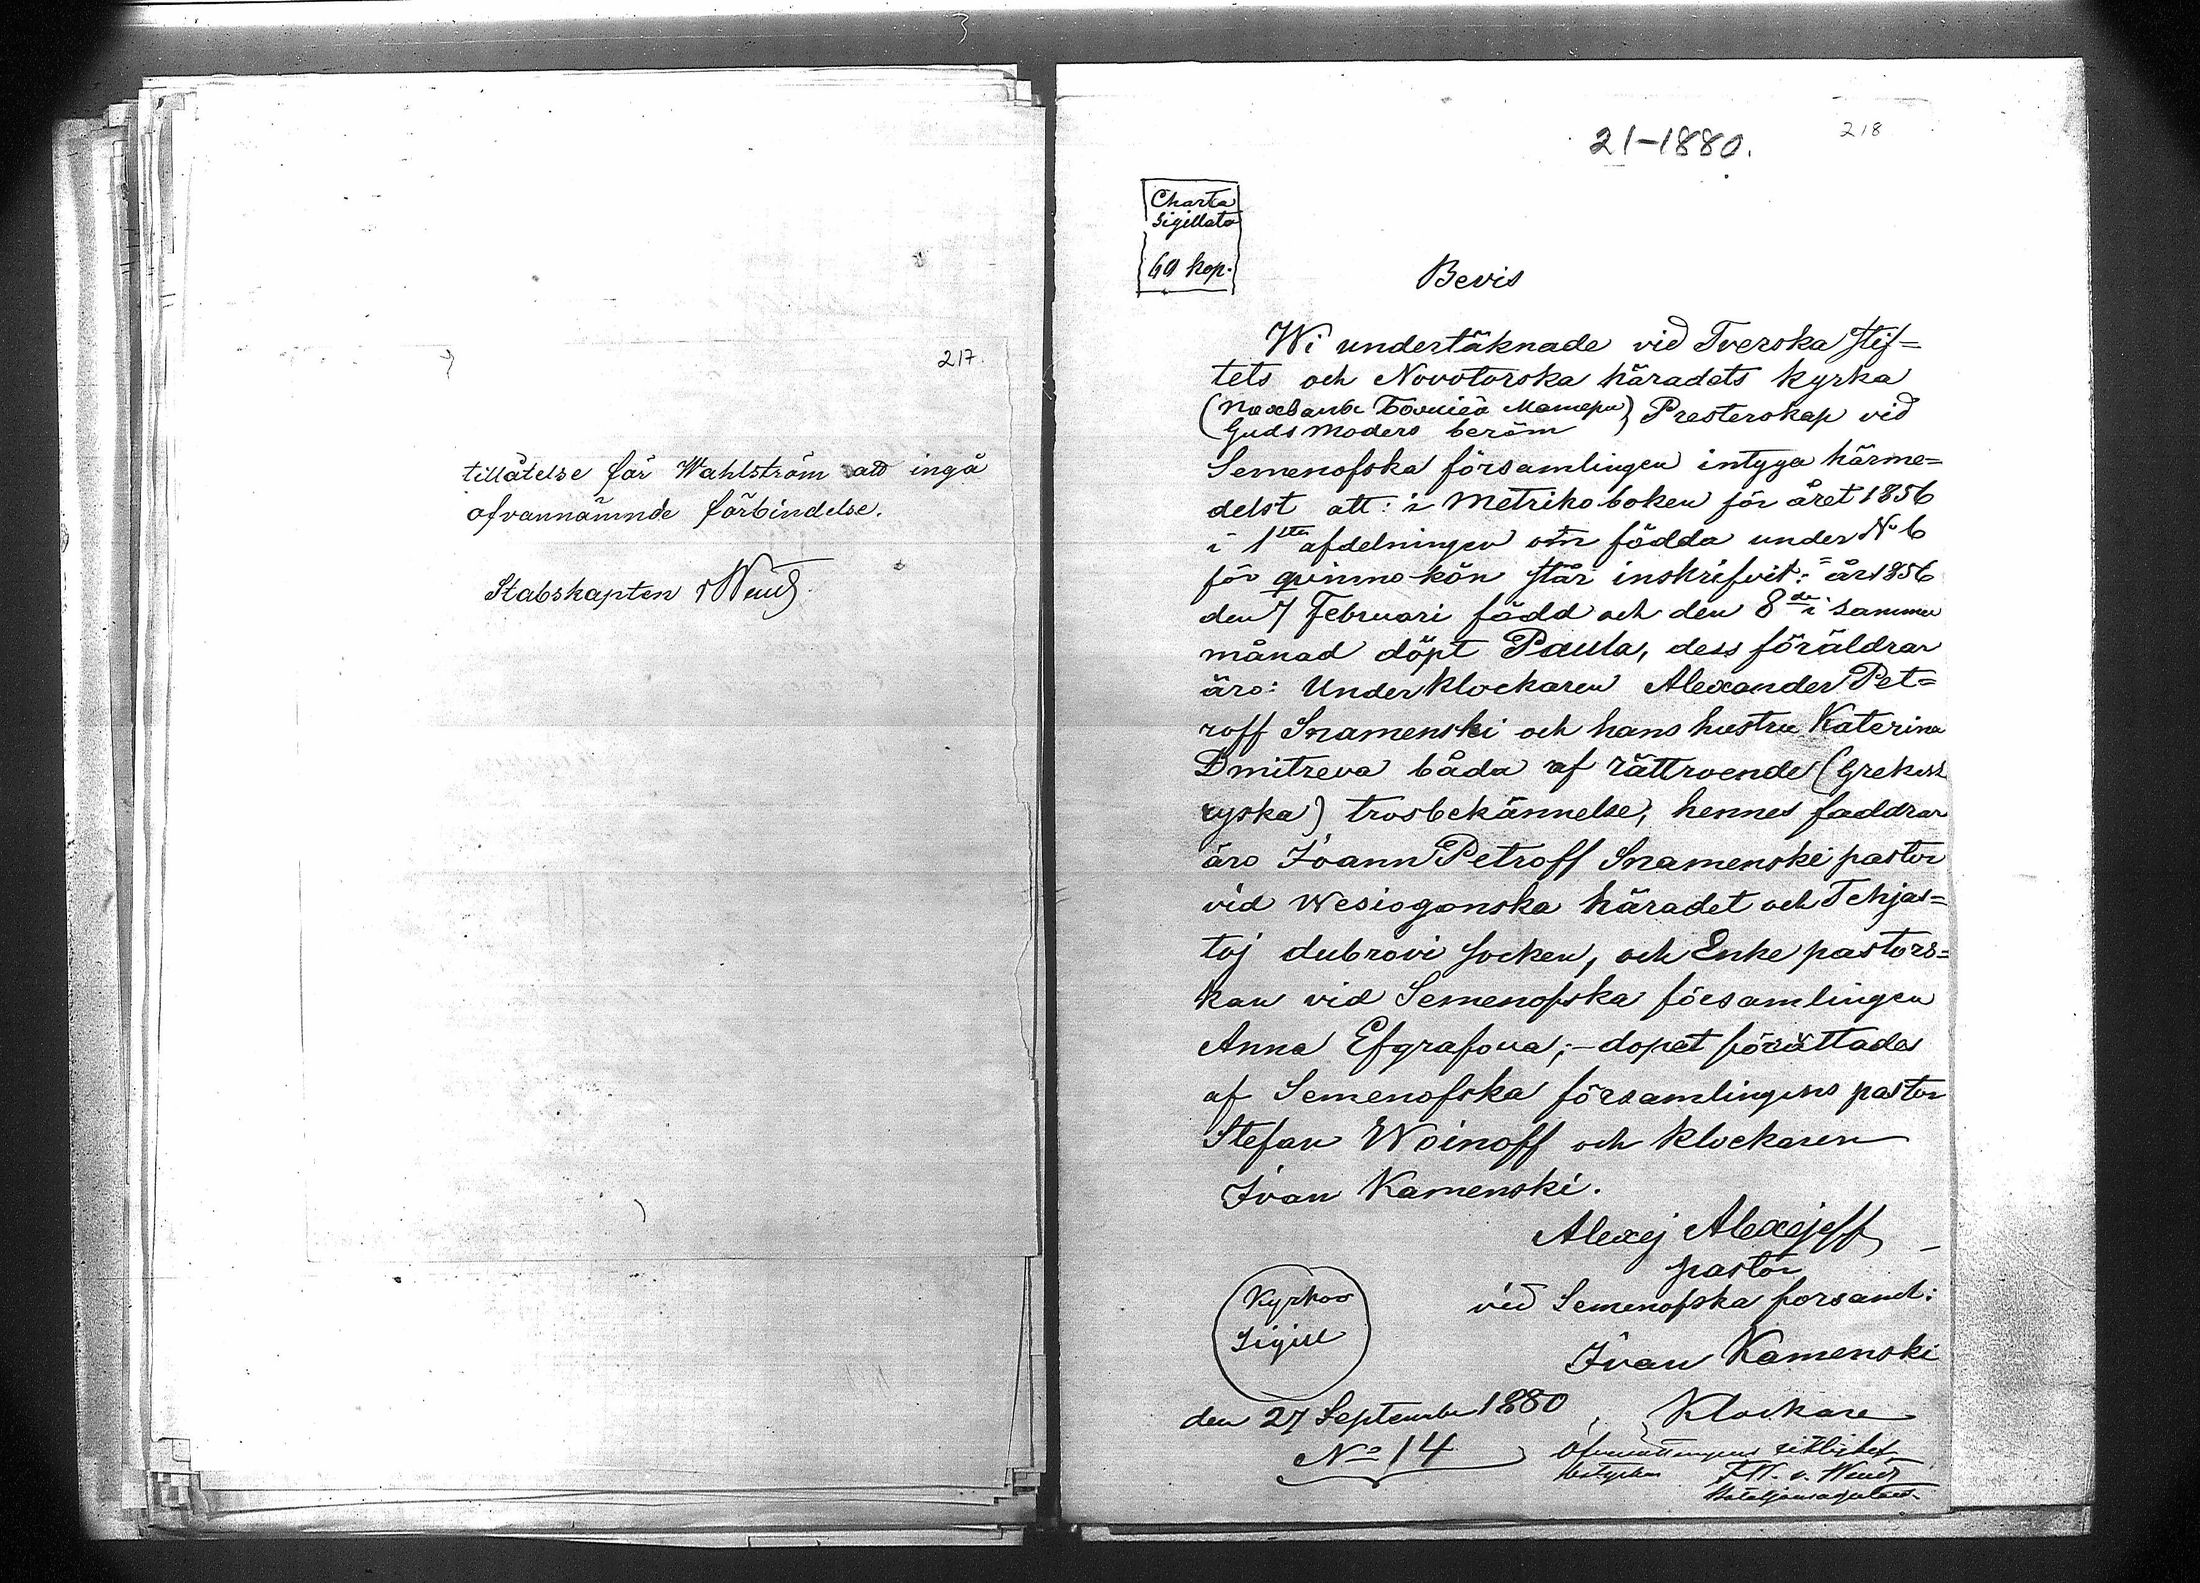 217.
tillåtelse för Wahlström att ingå
ofvannämnde förbindelse.
Stabskapten
218
21-1880.
Charta
Sigillata
60 kop.
Bevis
Wi undertäknade vid Tverska stif=
tets och Novotorska häradets kyrka
Presterskap vid
(Guds moders beröm)
Semenofska församlingen intyga härme=
delst att: i Metriko boken för året 1856
i 1sta afdelningen om födda under No 6
för qvinno kön står inskrifvit: år 1856
den 7 Februari född och den 8de i samma
månad döpt Paula, dess föräldrar
äro: Underklockaren Alexander Pet=
roff Snamenski och hans hustru Katerina
Dmitreva båda af rättroende (Grekisk
ryska) trosbekännelse, hennes faddrar
äro Ioann Petroff Snamenski pastor
vid Wesiogonska häradet och Tchjas=
toj dubrovi socken, och Enke pastors=
kan vid Semenofska församlingen
Anna Efgrafova; - dopet förättades
af Semenofska församlingens pastor
Stefan Woinoff och klockaren
Ivan Kamenski.
Alexej Alexejeff
pastor
vid Semenofska forsaml:
Kyrkos
Sigill
Ivan Kamenski
Klockare
den 27 September 1880
No 14
Öfversättningens riktighet
bestyrker F.W. v. Wendt
Bataljonsadjutant